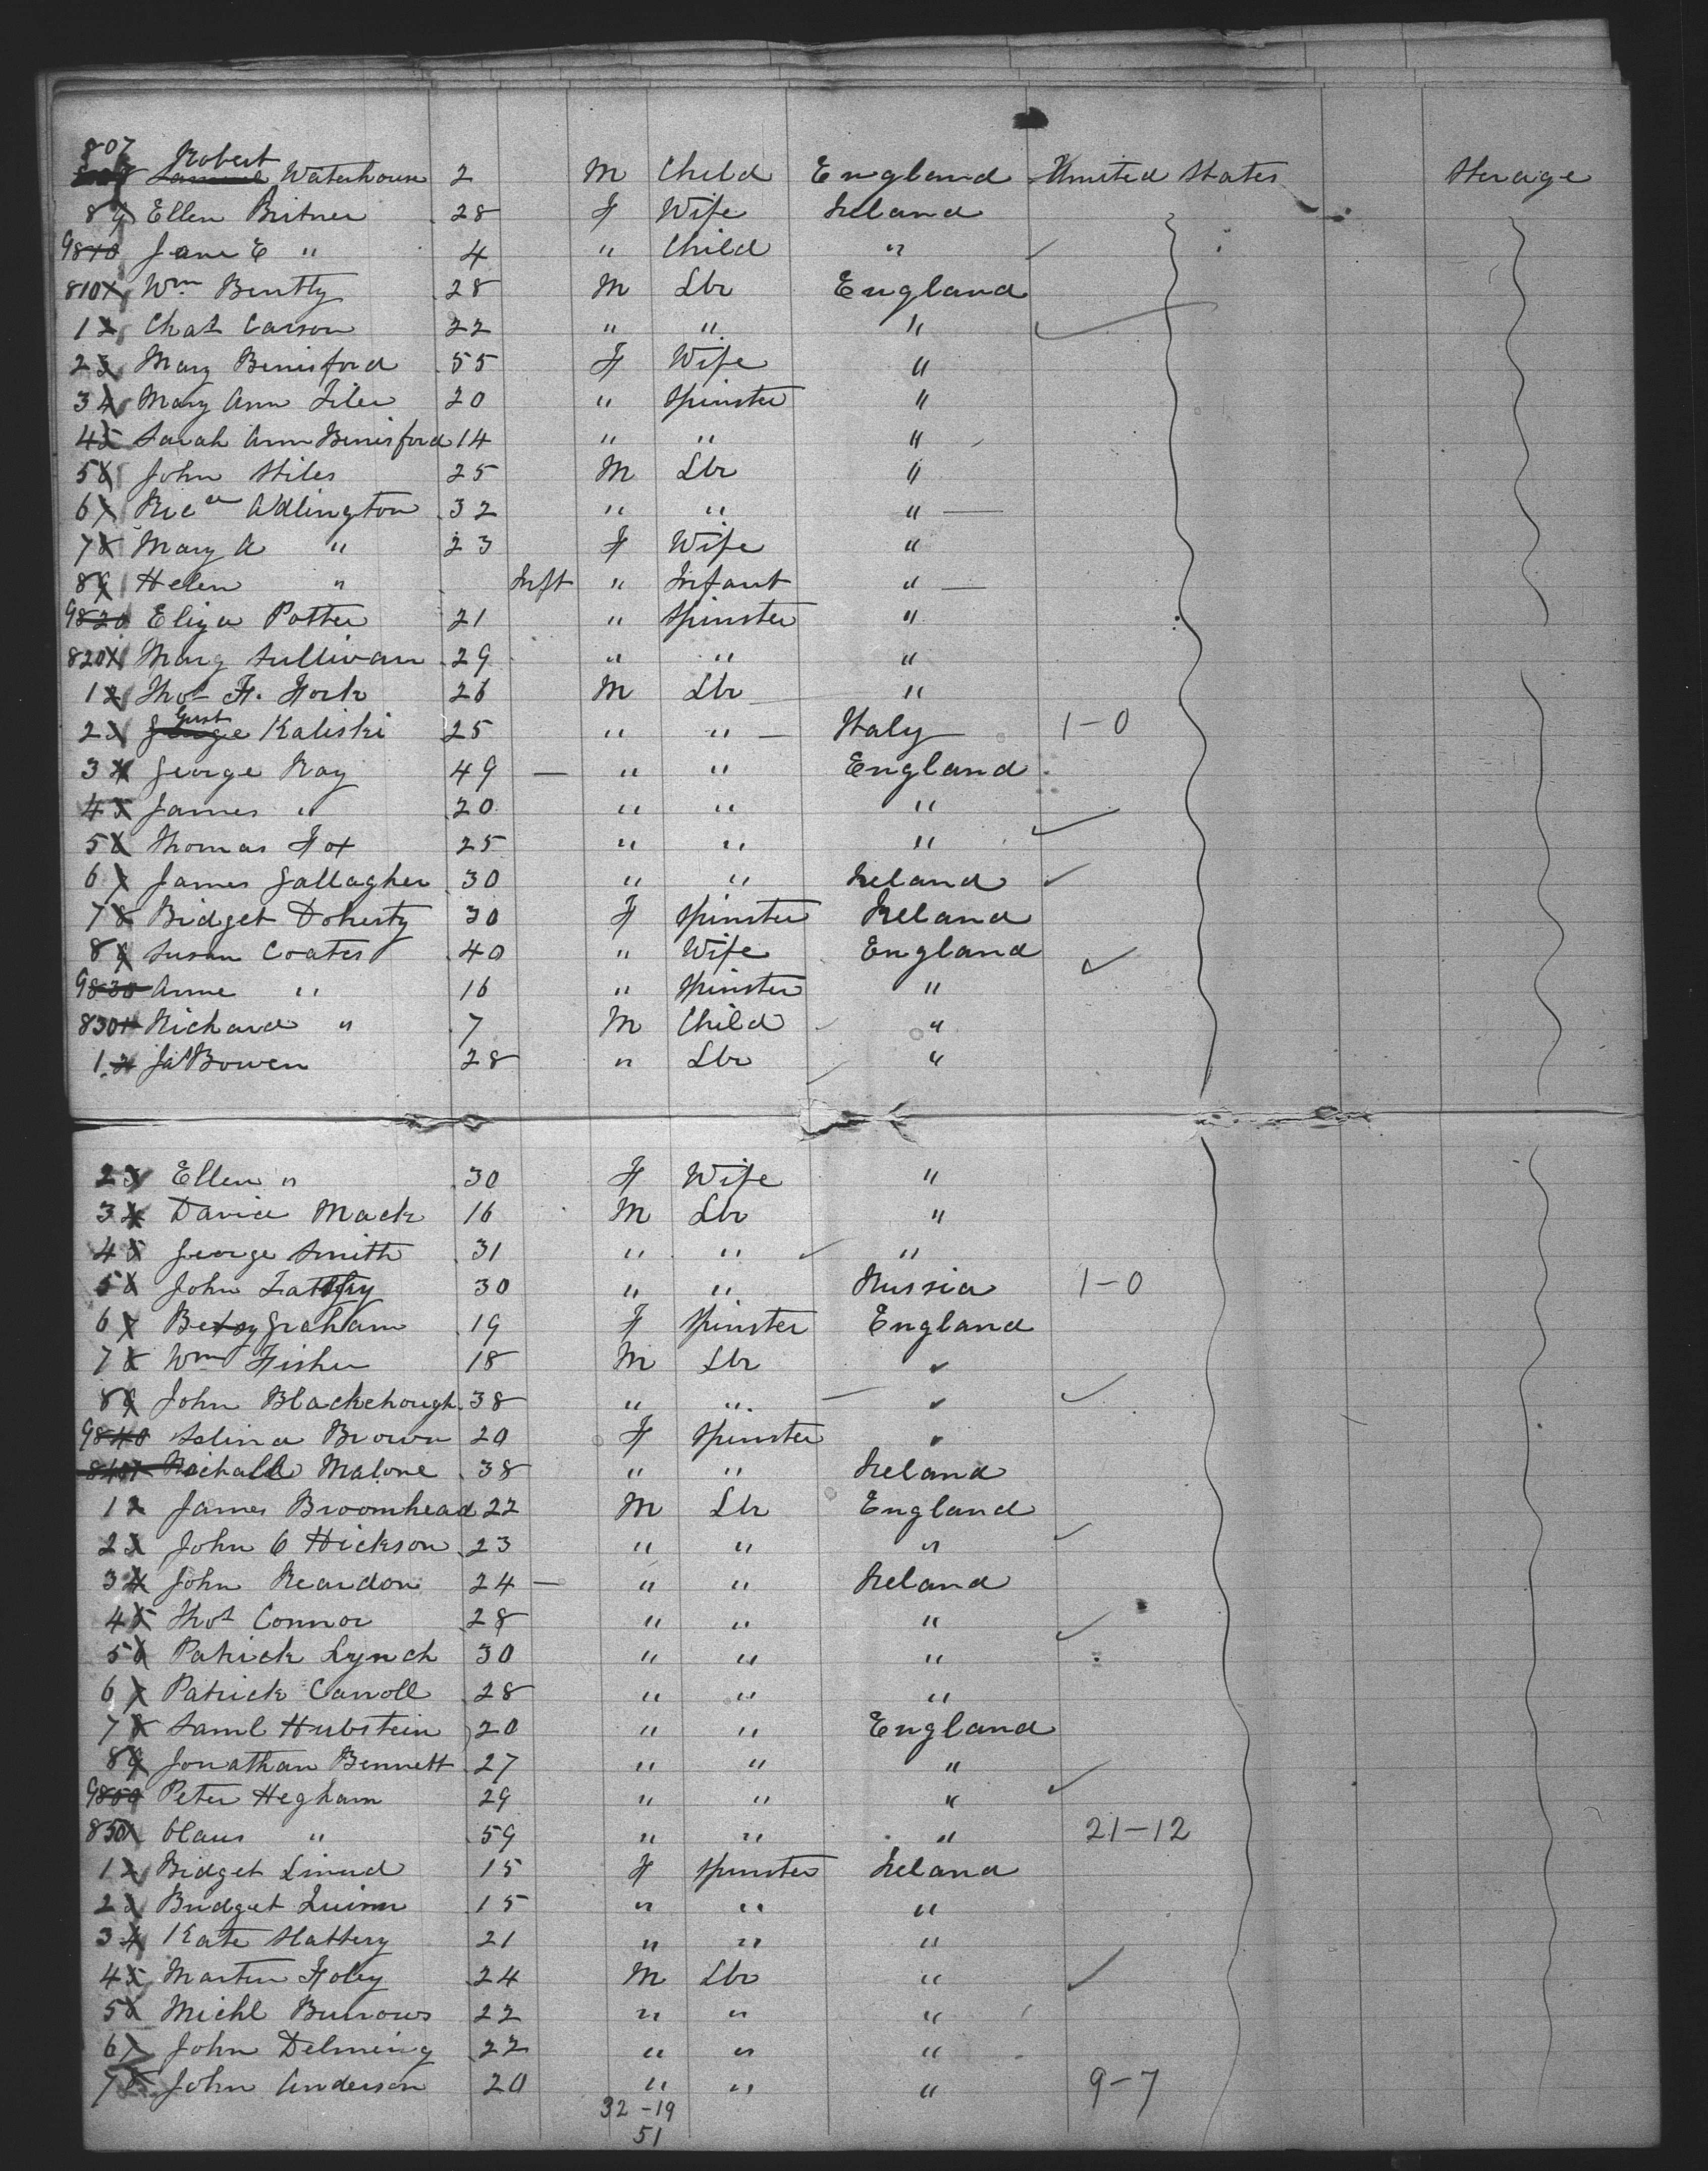 807 Robert Waterhouse 2 M Child England United States Sterage
8 Ellen Bitner 28 F Wife Ireland
9 Jane E " 4 " Child "
810 Wm Bently 28 M Lbr England
1 Chas Carson 22 " " "
2 Mary Benisford 55 F Wife "
3 Mary Ann 20 " Spinster "
4 Sarah Ann Benisford 14 " " "
5 John Stiles 25 M Lbr "
6 Adlington 32 " " "
7 Mary A " 23 F Wife "
8 Helen " Inft " Infant "
9 Eliza Potter 21 " Spinster "
820 Mary Sullivan 29 " " "
1 Thos F. 26 M Lbr "
2 Gust Kaliski 25 " " Italy 1-0
3 George Ray 49 " " England
4 James " 20 " " "
5 Thomas Fox 25 " " "
6 James Gallagher 30 " " Ireland
7 Bridget Doherty 30 F Spinster Ireland
8 Susan Coates 40 " Wife England
9 Anne " 16 " Spinster "
830 Richard " 7 M Child "
1 Jas Bowen 28 " Lbr "
2 Ellen " 30 F Wife "
3 David Mack 16 M Lbr "
4 George Smith 31 " " "
5 John 30 " " Russia 1-0
6 Betsy Graham 19 F Spinster England
7 Wm Fisher 18 M Lbr "
8 John Blackehough 38 " " "
9 Selina Brown 20 F Spinster "
840 Malone 38 " " Ireland
1 James Broomhead 22 M Lbr England
2 John C Hickson 23 " " "
3 John Reardon 24 " " Ireland
4 Thos Connor 28 " " "
5 Patrick Lynch 30 " " "
6 Patrick Carroll 28 " " "
7 Saml Hubstein 20 " " England
8 Jonathan Bennett 27 " " "
9 Peter Hegham 29 " " "
850 Claus " 59 " " " 21-12
1 Bidget 15 F Spinster Ireland
2 Bridget Quinn 15 " " "
3 Kate Slattery 21 " " "
4 Martin Foley 24 M Lbr "
5 Michl Burrows 22 " " "
6 John Delmeny 22 " " "
7 John Anderson 20 " " " 9-7
32-19
51